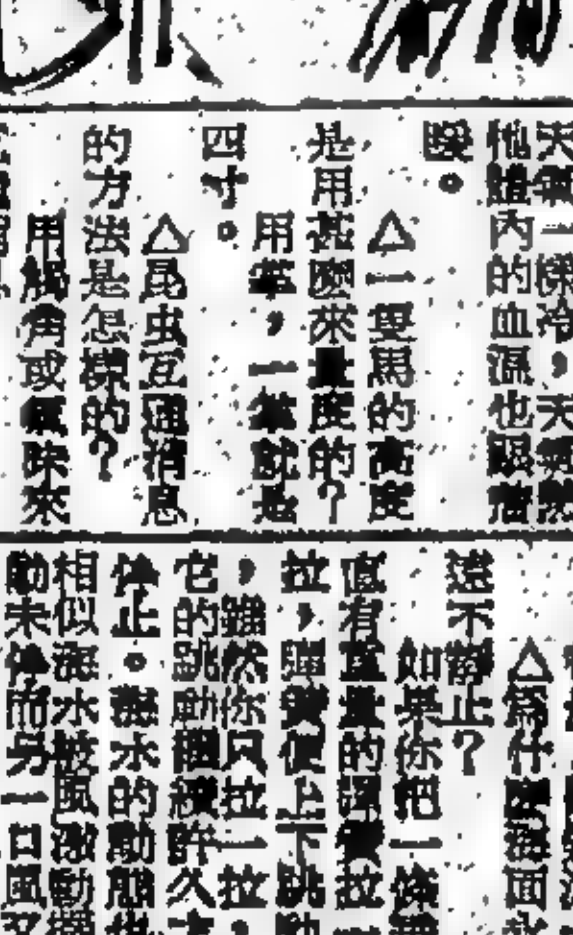 天氣一樣冷，天氣熱
牠體內的血溫也跟着
暖。
△一隻馬的高度
是用甚麼來量度的？
用掌，一掌就是
四寸。
△昆虫互通消息
的方法是怎樣的？
用觸角或氣味來
△爲什麼海面永
遠不靜止？
如果你把一條
直有重量的彈簧拉
拉，彈簧便上下跳動
，雖然你只拉一拉，
它的跳動繼續許久才
停止。海水的動態
相似海水被風激動
動未停而另一口風又